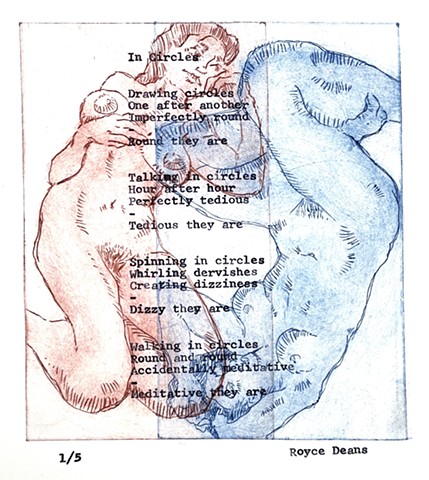 In Circles
Drawing circles
One after another
Imperfectly round
-
Round they are
Talking in circles
Hour after hour
Perfectly tedious
-
Tedious they are
Spinning in circles
Whirling dervishes
Creating dizziness
-
Dizzy they are
Walking in circles
Round and round
Accidentally meditative
-
Meditative they are
1/5
Royce Deans